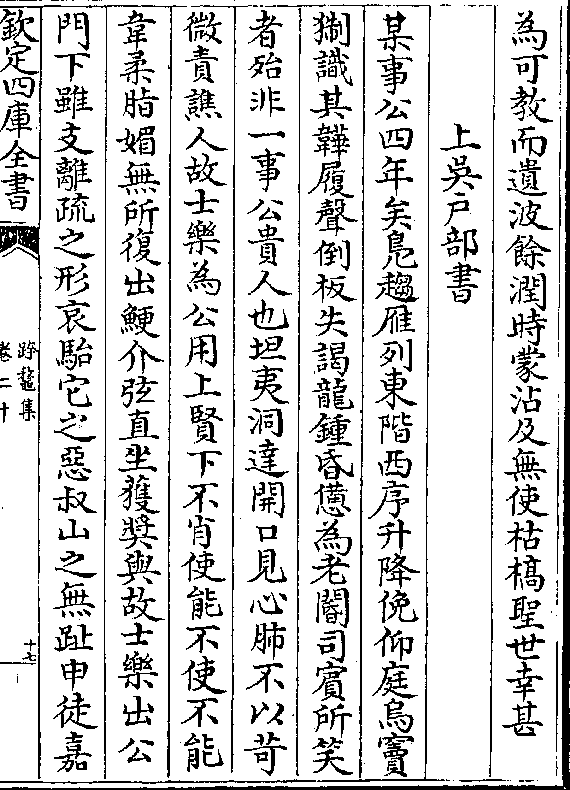 為可教而遺波餘潤時蒙沾及無使枯槁聖世幸甚
上吳戶部書
某事公四年矣鳬趨雁列東階西序升降俛仰庭烏竇
猘識其鞾履聲倒板失謁龍鍾昏憊為老閽司賓所笑
者殆非一事公貴人也坦夷洞達開口見心肺不以苛
微責譙人故士樂為公用上賢下不肖使能不使不能
韋柔脂媚無所復出鯁介弦直坐獲奬與故士樂出公
門下雖支離疏之形哀駘它之惡叔山之無趾申徒嘉
欽定四庫全書
路鼇集
卷二十
十七